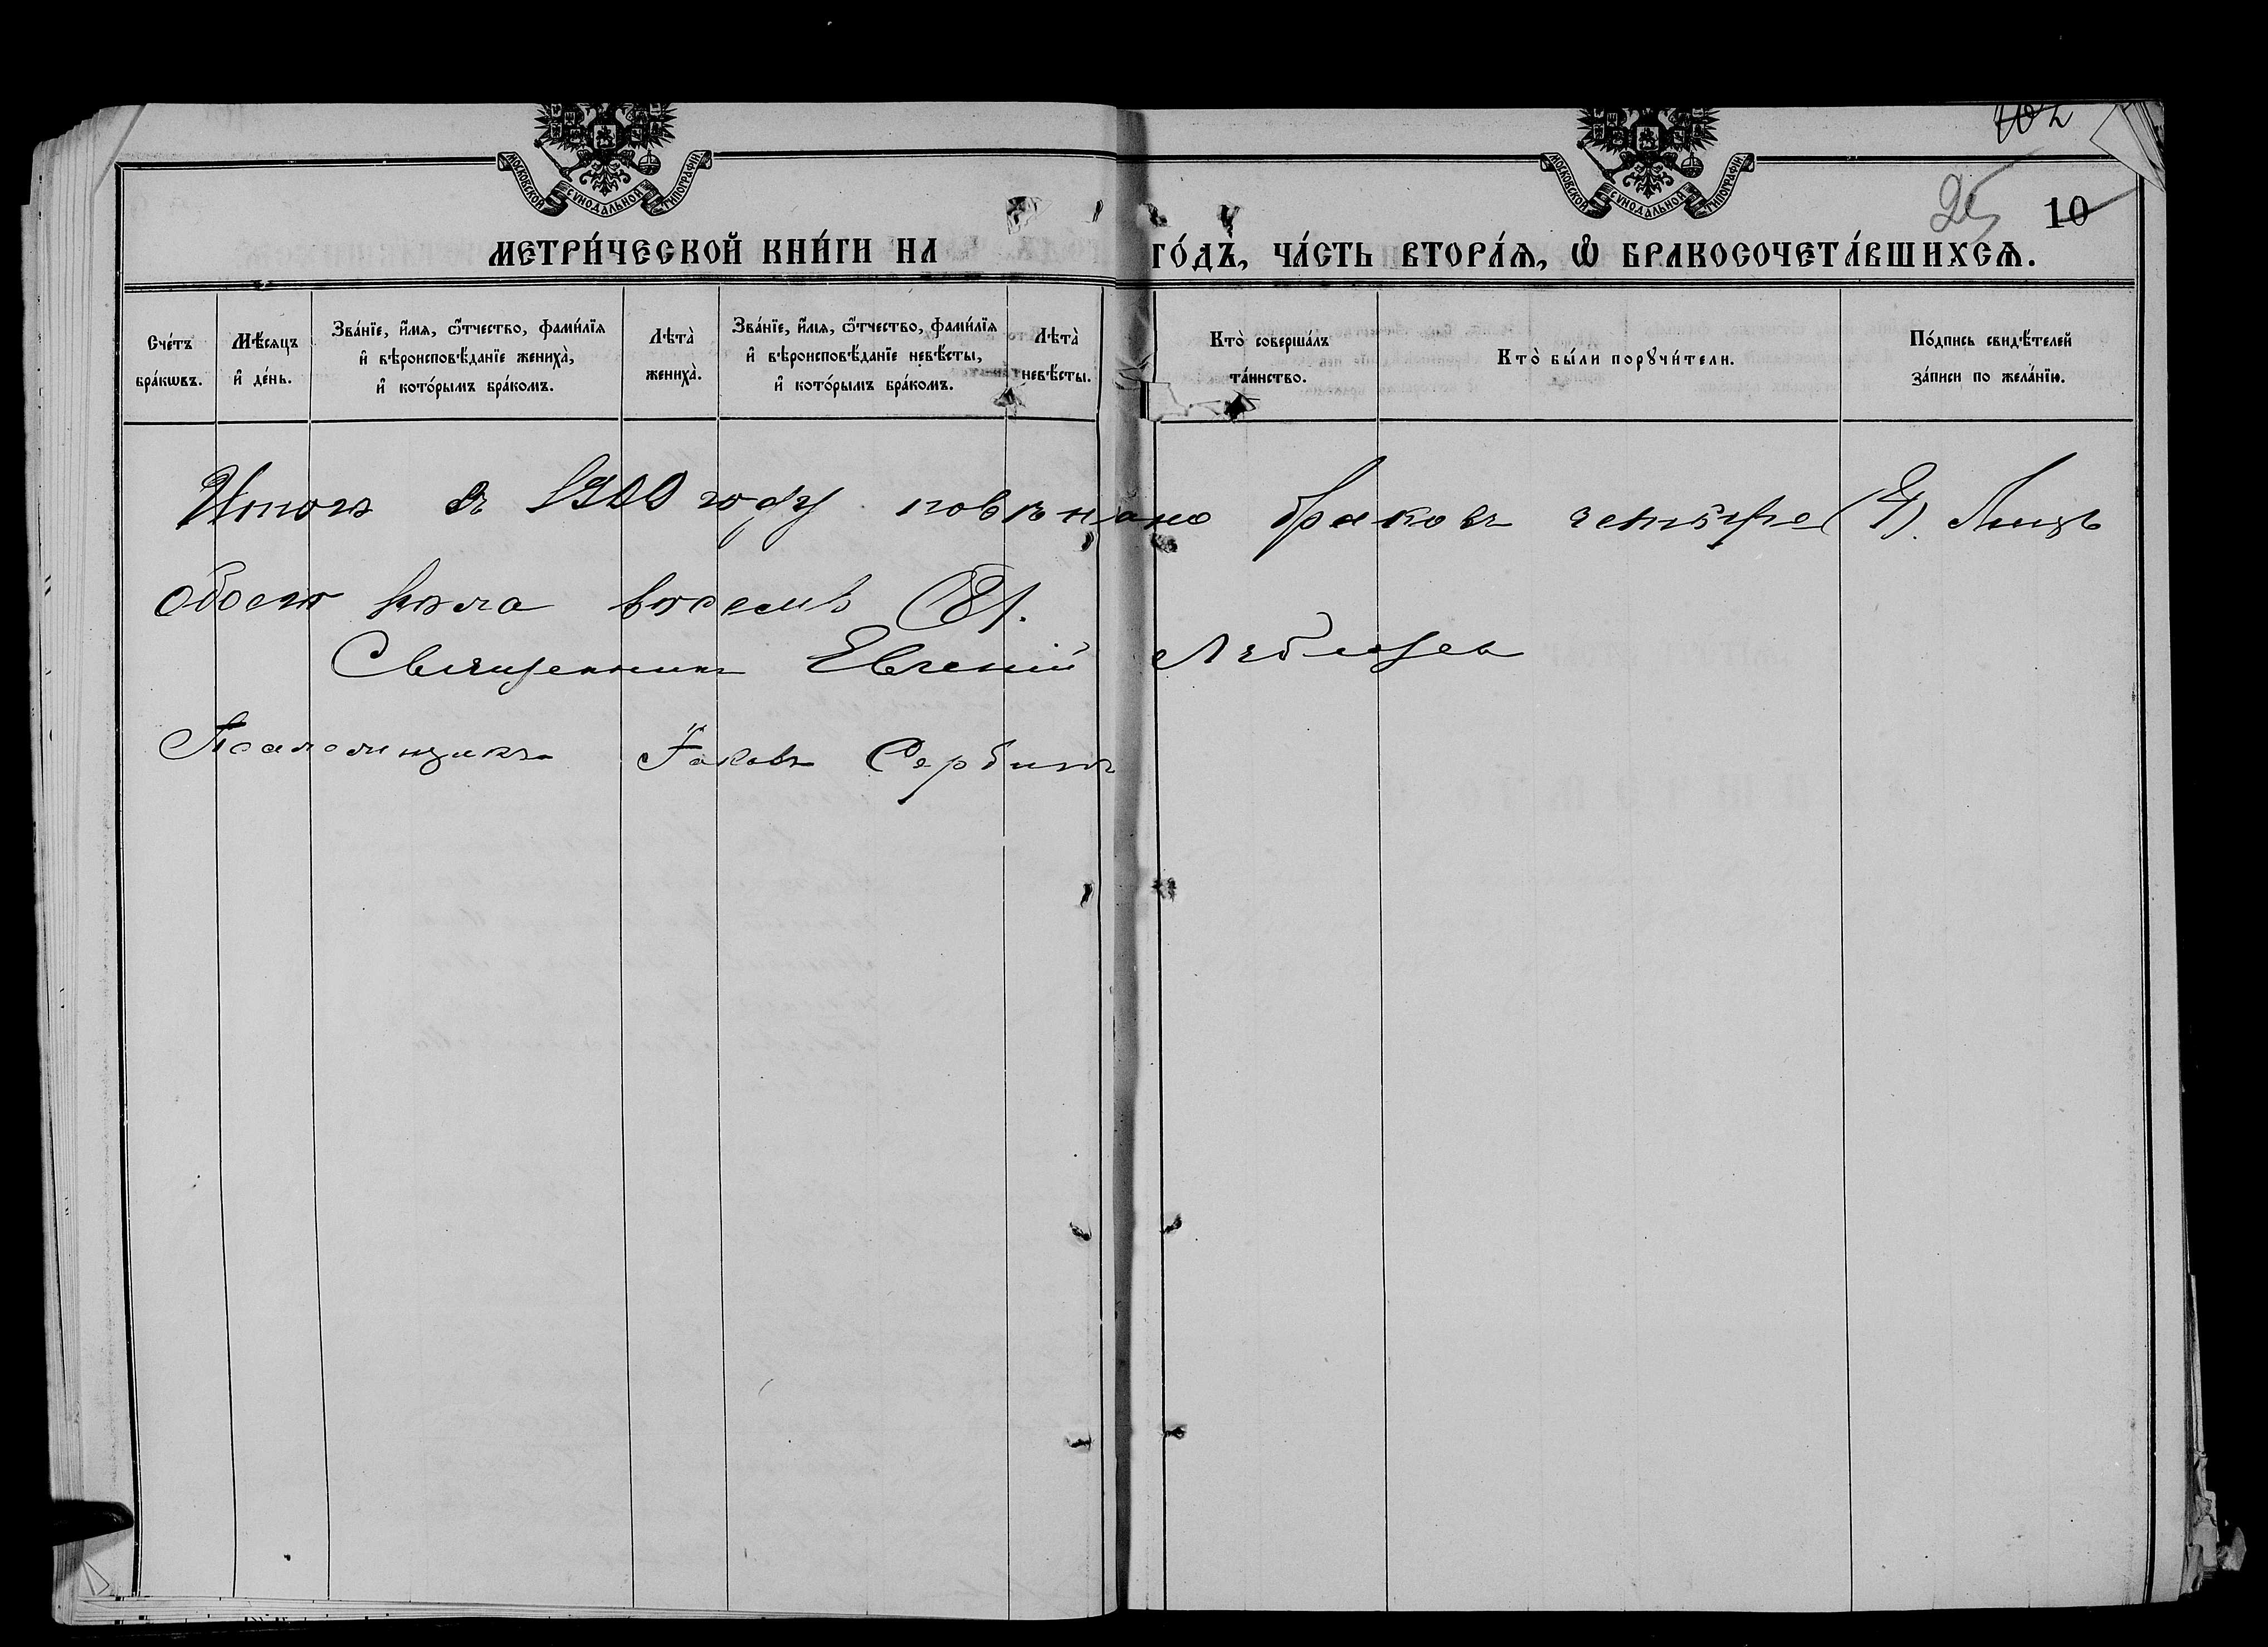 МОСКОВСКОЙ СѴНОДАЛЬНОЙ ТИПОГРАФІИ
МОСКОВСКОЙ СѴНОДАЛЬНОЙ ТИПОГРАФІИ
102
25 10
МЕТРИ́ЧЕСКОЙ КНИ́ГИ НА ГО́ДЪ, ЧА́СТЬ ВТОРА́Ѧ, Ѡ҆ БРАКОСОЧЕТА́ВШИХСѦ.
Сче́тъ бра́кѡвъ.
Мѣ́сѧцъ и҆ де́нь.
Зва́нїе, и҆́мѧ, ѻ҆́тчество, фами́лїѧ и҆ вѣроисповѣ́данїе жениха̀, и҆ кото́рымъ бра́комъ.
Лѣта̀ жениха̀.
Зва́нїе, и҆́мѧ, ѻ҆́тчество, фами́лїѧ и҆ вѣроисповѣ́данїе невѣ́сты, и҆ кото́рымъ бра́комъ.
Лѣта̀ невѣ́сты.
Кто̀ соверша́лъ та́инство.
Кто̀ бы́ли порꙋчи́тели.
По́дпись свидѣ́телей за́писи по жела́нїю.
Итого въ 1900 году повѣнчано браковъ четыре (4). Лицъ
обоего пола восемь (8).
Священникъ Евгеній
Псаломщикъ Іаковъ Сербинъ